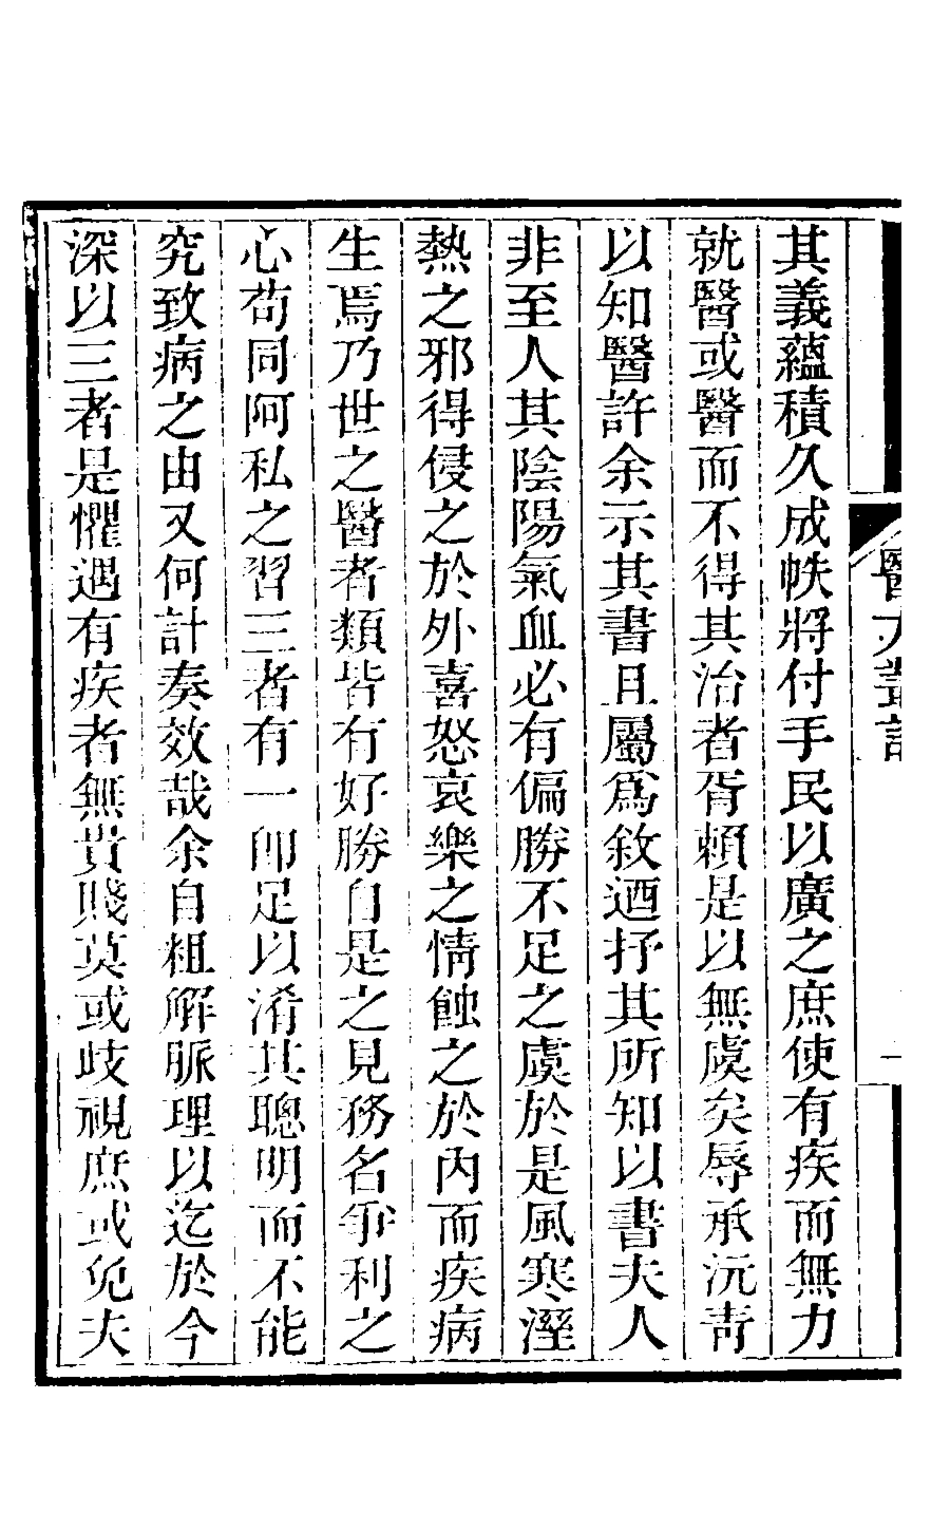 其義蘊積久成帙將付手民以廣之庶使有疾而無力
就醫或醫而不得其治者胥賴是以無虞矣辱承沅靑
以知醫許余示其書且屬爲敘迺抒其所知以書夫人
非至人其陰陽氣血必有偏勝不足之虞於是風寒溼
熱之邪得侵之於外喜怒哀樂之情蝕之於內而疾病
生焉乃世之醫者類皆有好勝自是之見務名爭利之
心苟同阿私之習三者有一卽足以淆其聰明而不能
究致病之由又何計奏效哉余自粗解脈理以迄於今
深以三者是懼遇有疾者無貴賤莫或歧視庶或免夫